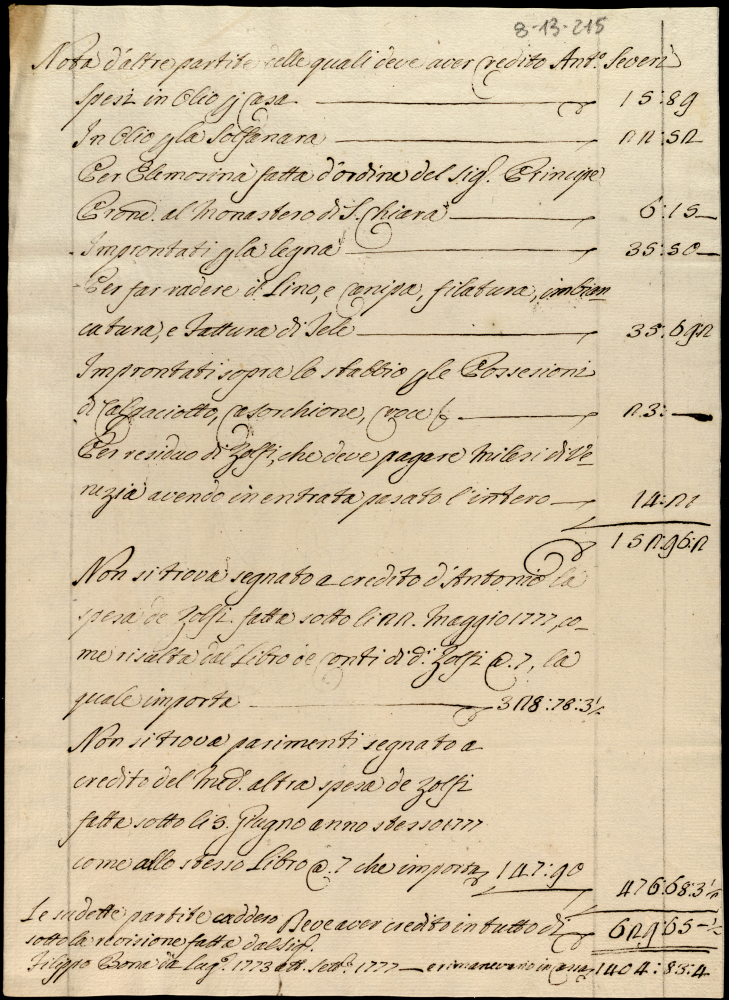 8-13-215
Nota d'altre partite nelle quali deve aver credito Ant.º Severi
Spesi in Olio p casa 15:89
In Olio p la Solfanara 22:52
Per Elemosina fatta d'ordine del Sig.r Principe
Prone. al Monastero di S. Chiara 6:15
Improntati p la legna 35:50
Per far radere il Lino, e Canipa, filatura, imbian
catura, e Fattura di Tele 35:69 2
Improntati sopra lo stabbio p le Possesioni
di Calpaciotto, Casorchione, Croce 23:
Per residuo di Zolfi, che deve pagare Milesi di Ve
nezia avendo in entrata pasato l'intero 14:21
152:96:2
Non si trova segnato a credito d'Antonio la
spesa de Zolfi fatta sotto li 22. Maggio 1777, co-
me risalta dal Libro de Conti di d.i Zolfi @. 7, la
quale importa 328:78:3½
Non si trova parimenti segnato a
credito del Med.º altra spesa de Zolfi
fatta sotto li 3. Giugno anno stesso 1777
come allo stesso Libro @. 7 che importa 147:90
476:68:3½
Le sudette partite caddero Deve aver credito in tutto di 629:65-½
sotto la revisione fatta dal Sig.r
Filippo Bona da Lug.º 1773 a tt.º Sett.e 1777 e rimanevano in cassa 1404:85:4